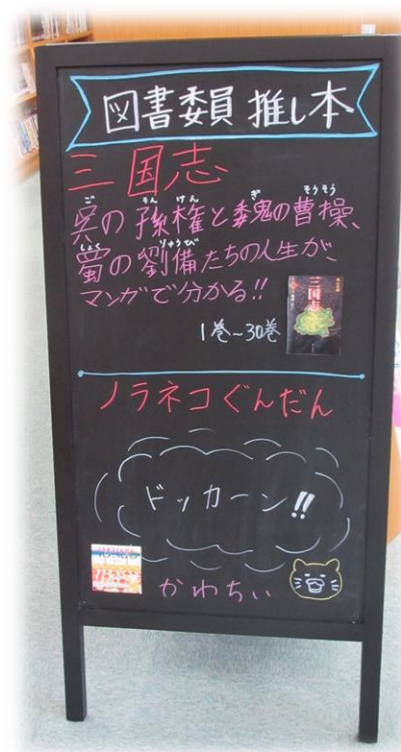 図書委員 推し本
三国志
呉の孫権と魏の曹操、
蜀の劉備たちの人生が、
マンガで分かる!!
1巻~30巻
三国志
ノラネコぐんだん
ドッカーン!!
かわちぃ